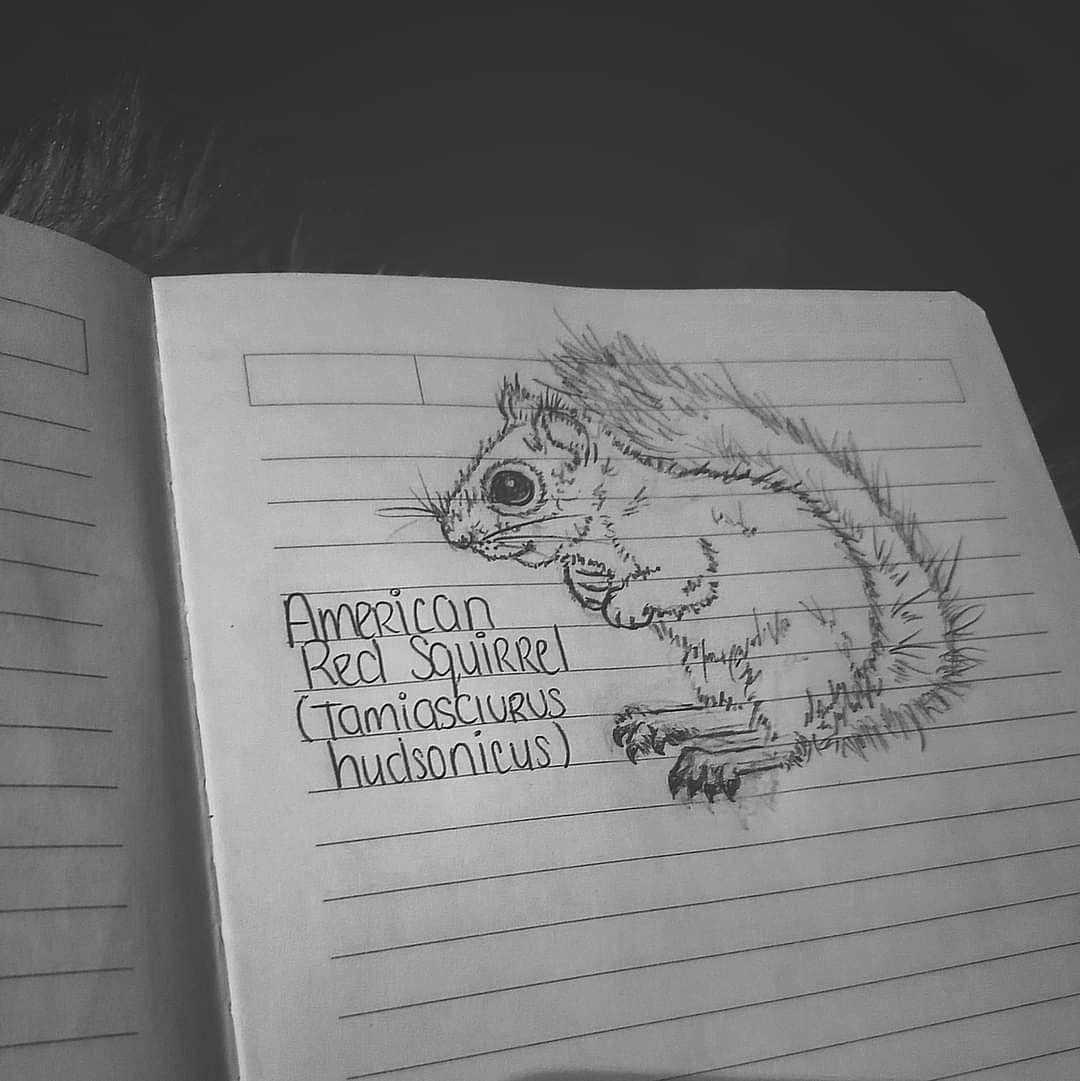 American
Red Squirrel
(Tamiasciurus
hudsonicus)